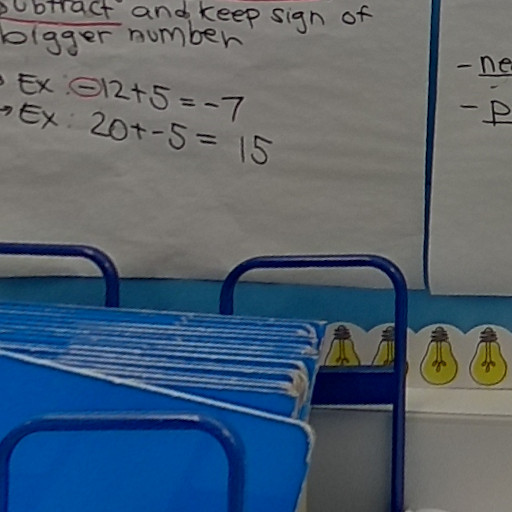 subtract and keep sign of
bigger number
Ex: -12+5=-7
→Ex: 20+-5= 15
-
-